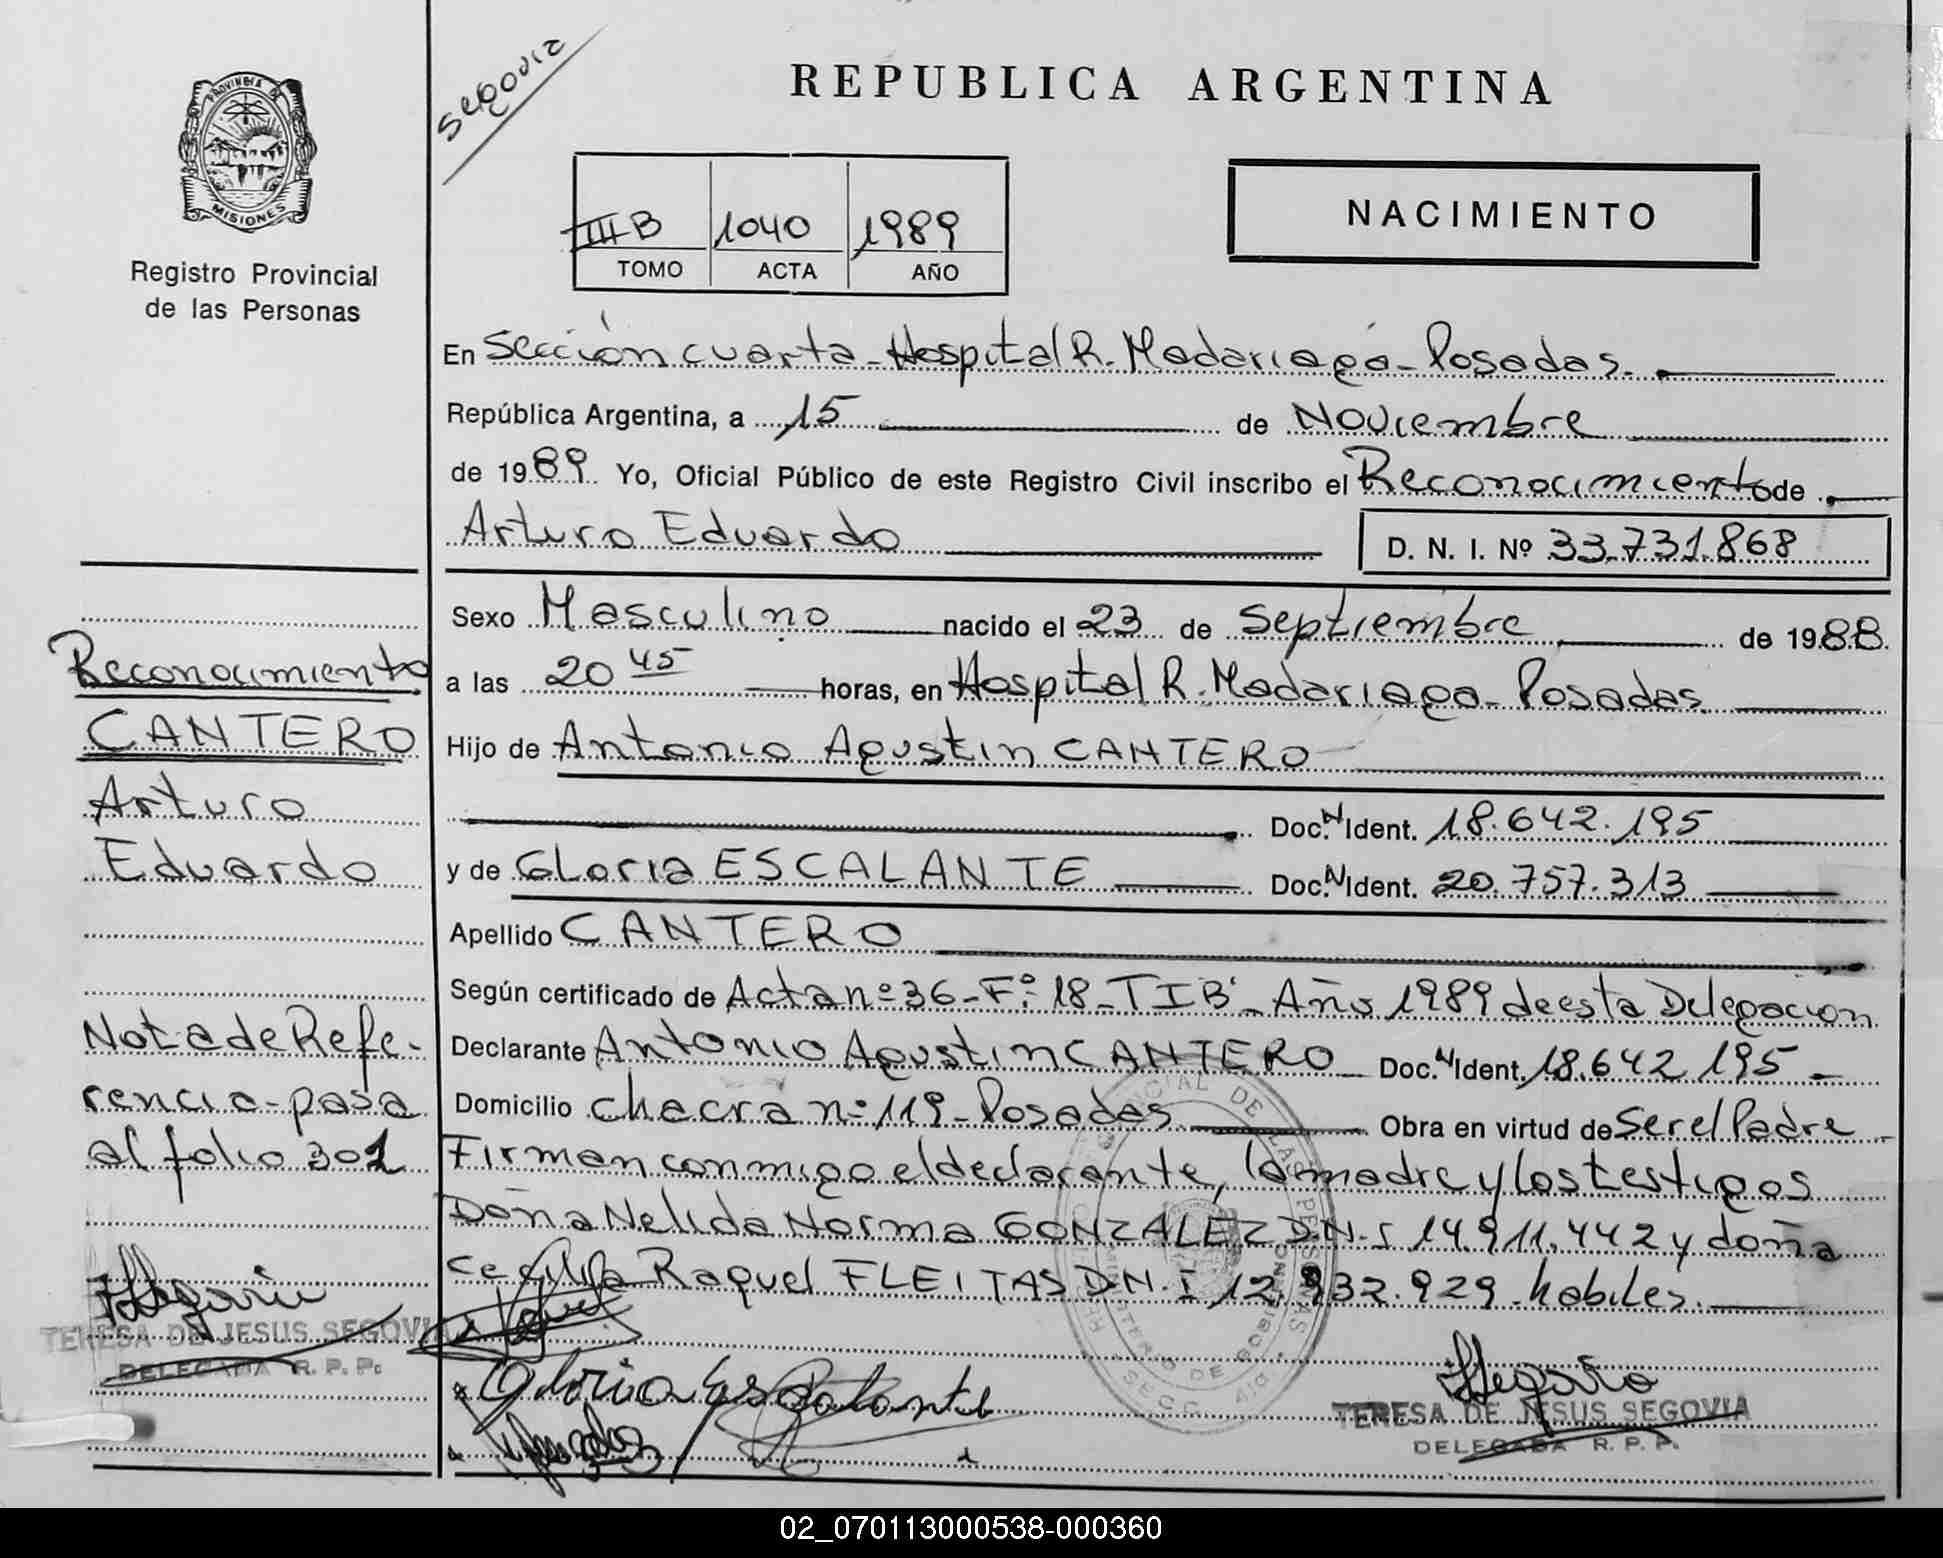 segovia
REPUBLICA ARGENTINA
PROVINCIA DE
MISIONES
Registro Provincial
de las Personas
III B 1040 1989
TOMO ACTA AÑO
NACIMIENTO
En Sección cuarta - Hospital R. Madariaga - Posadas.
República Argentina, a 15 de Noviembre
de 1989. Yo, Oficial Público de este Registro Civil inscribo el Reconocimiento de
Arturo Eduardo D. N. I. Nº 33.731.868
Sexo Masculino nacido el 23 de Septiembre de 1988.
a las 20 45 horas, en Hospital R. Madariaga - Posadas
Hijo de Antonio Agustin CANTERO
Doc. N Ident. 18.642.195
y de Gloria ESCALANTE Doc. N Ident. 20.757.313
Apellido CANTERO
Según certificado de Acta nº 36 - Fº: 18 - T I B' - Año 1989 de esta Delegacion
Declarante Antonio Agustin CANTERO Doc. N Ident. 18.642.195
Domicilio chacra nº 119 - Posadas Obra en virtud de ser el Padre
Firman conmigo el declarante, la madre y los testigos
Doña Nelida Norma GONZALEZ D.N.I 14.911.442 y doña
Cecilia Raquel FLEITAS D.N.I 12.932.929 - habiles.
Reconocimiento
CANTERO
Arturo
Eduardo
Nota de Refe-
rencia - pasa
al folio 301
TERESA DE JESUS SEGOVIA
DELEGADA R. P. P.
Gloria Escalante
TERESA DE JESUS SEGOVIA
DELEGADA R. P. P.
02_070113000538-000360